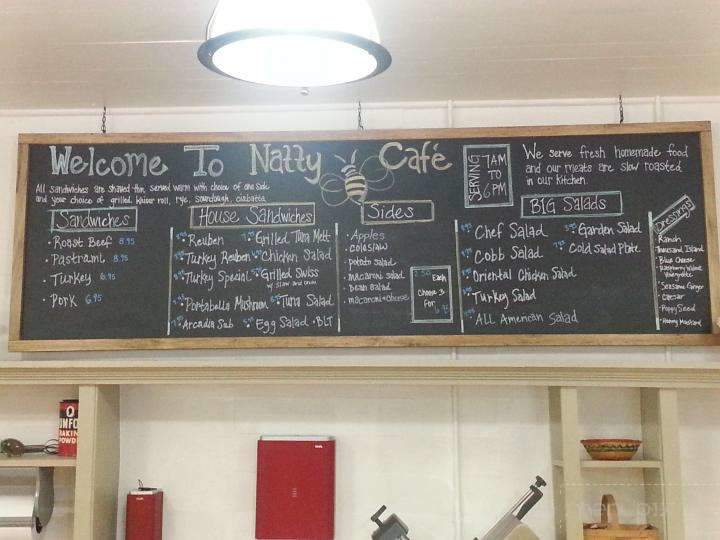 Welcome To Natty Café
All sandwiches are shaved thin, served warm with choice of one side
and your choice of grilled, kaiser roll, rye, sourdough, ciabatta
Sandwiches
• Roast Beef 8.95
• Pastrami 8.95
• Turkey 6.95
• Pork 6.95
House Sandwiches
Reuben
Turkey Reuben
Turkey Special
Portabella Mushroom
Arcadia Sub
Grilled Tuna Melt
Chicken Salad
Grilled Swiss
w/ Slaw and Onion
Tuna Salad
Egg Salad • BLT
Sides
• Apples
• coleslaw
• potato salad
• macaroni salad
• Bean salad
• macaroni & cheese
Each
Choose 3
For
SERVING
7AM
TO
6PM
We serve fresh homemade food
and our meats are slow roasted
in our kitchen.
BIG Salads
Chef Salad
Cobb Salad
Oriental Chicken Salad
Turkey Salad
ALL American Salad
Garden Salad
Cold Salad Plate
Dressings
• Ranch
Thousand Island
• Blue cheese
• Raspberry Walnut
Vinegrette
• Seasame Ginger
• Caesar
• Poppy Seed
• Honey Mustard
BAKING
POWDER